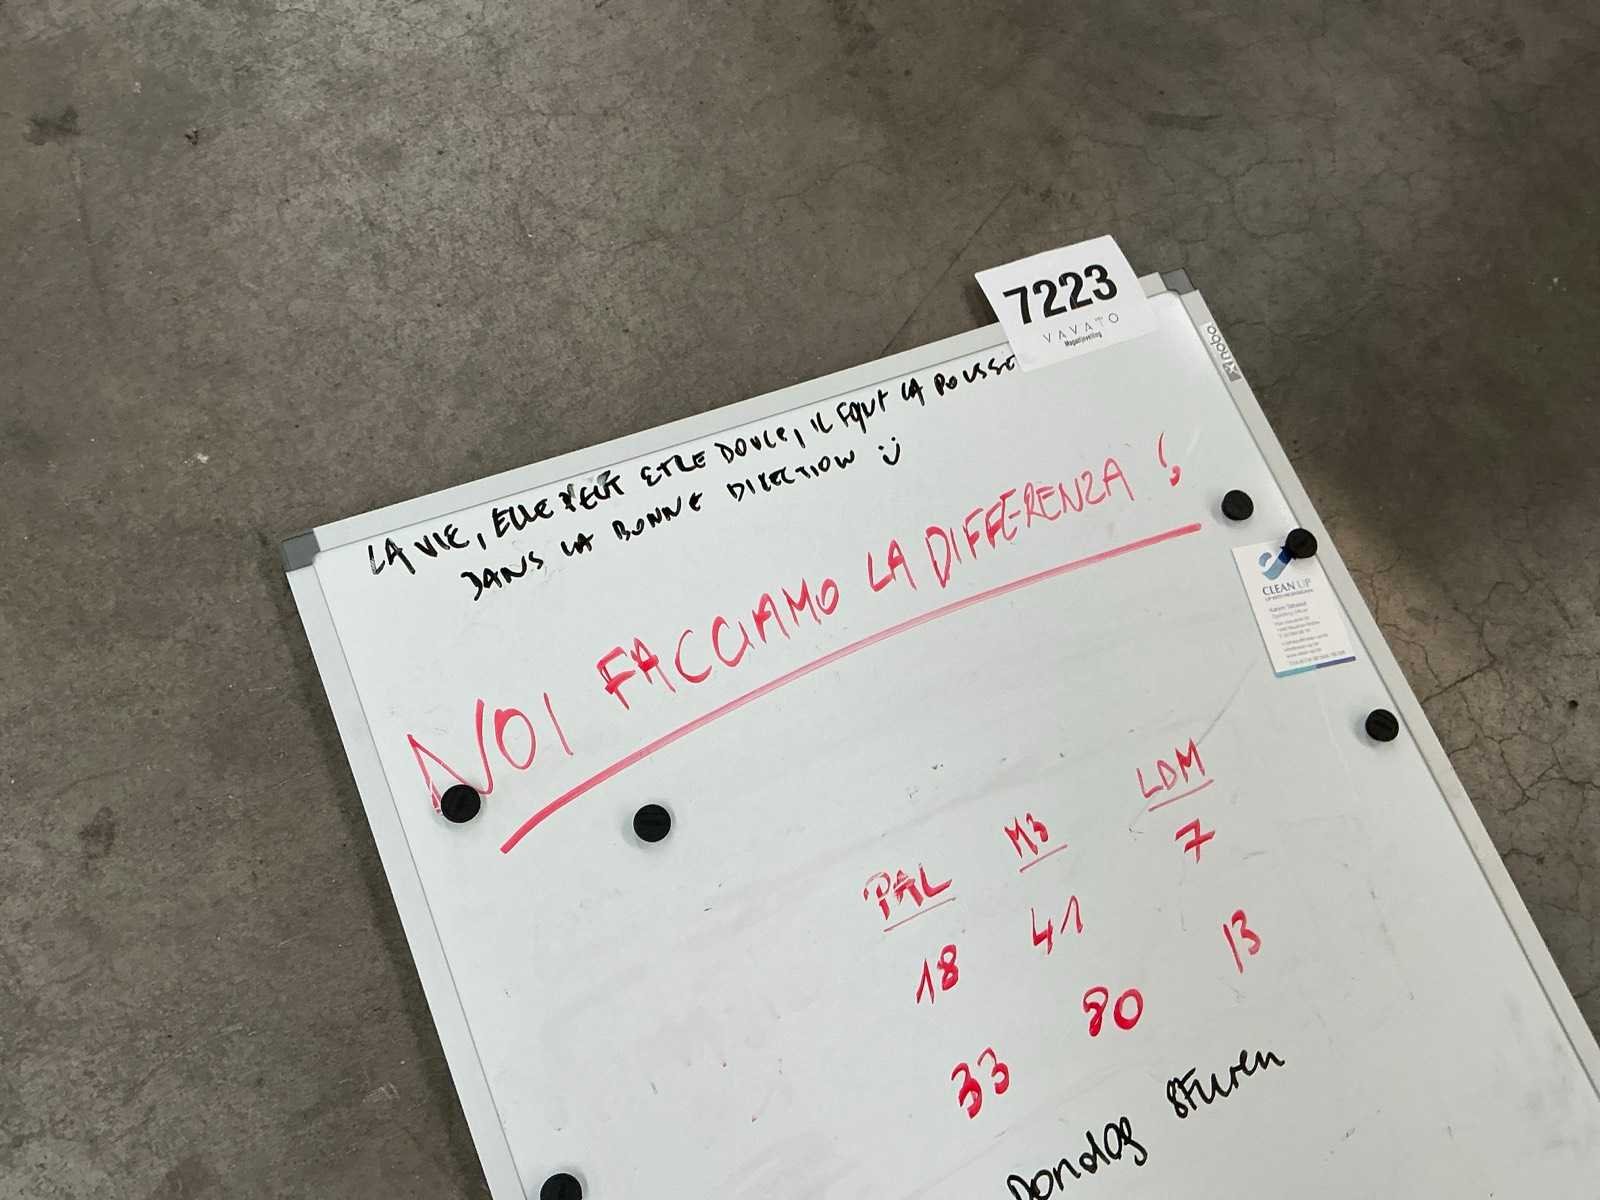 7223
VAVATO
Magazijnveiling
nobo
LA VIE, ELLE PEUT ETRE DOUCE, IL FAUT LA POUSSE
DANS LA BONNE DIRECTION
NOI FACCIAMO LA DIFFERENZA !
CLEAN UP
PAL M3 LDM
18 41 7
33 80 13
Dondag sturen